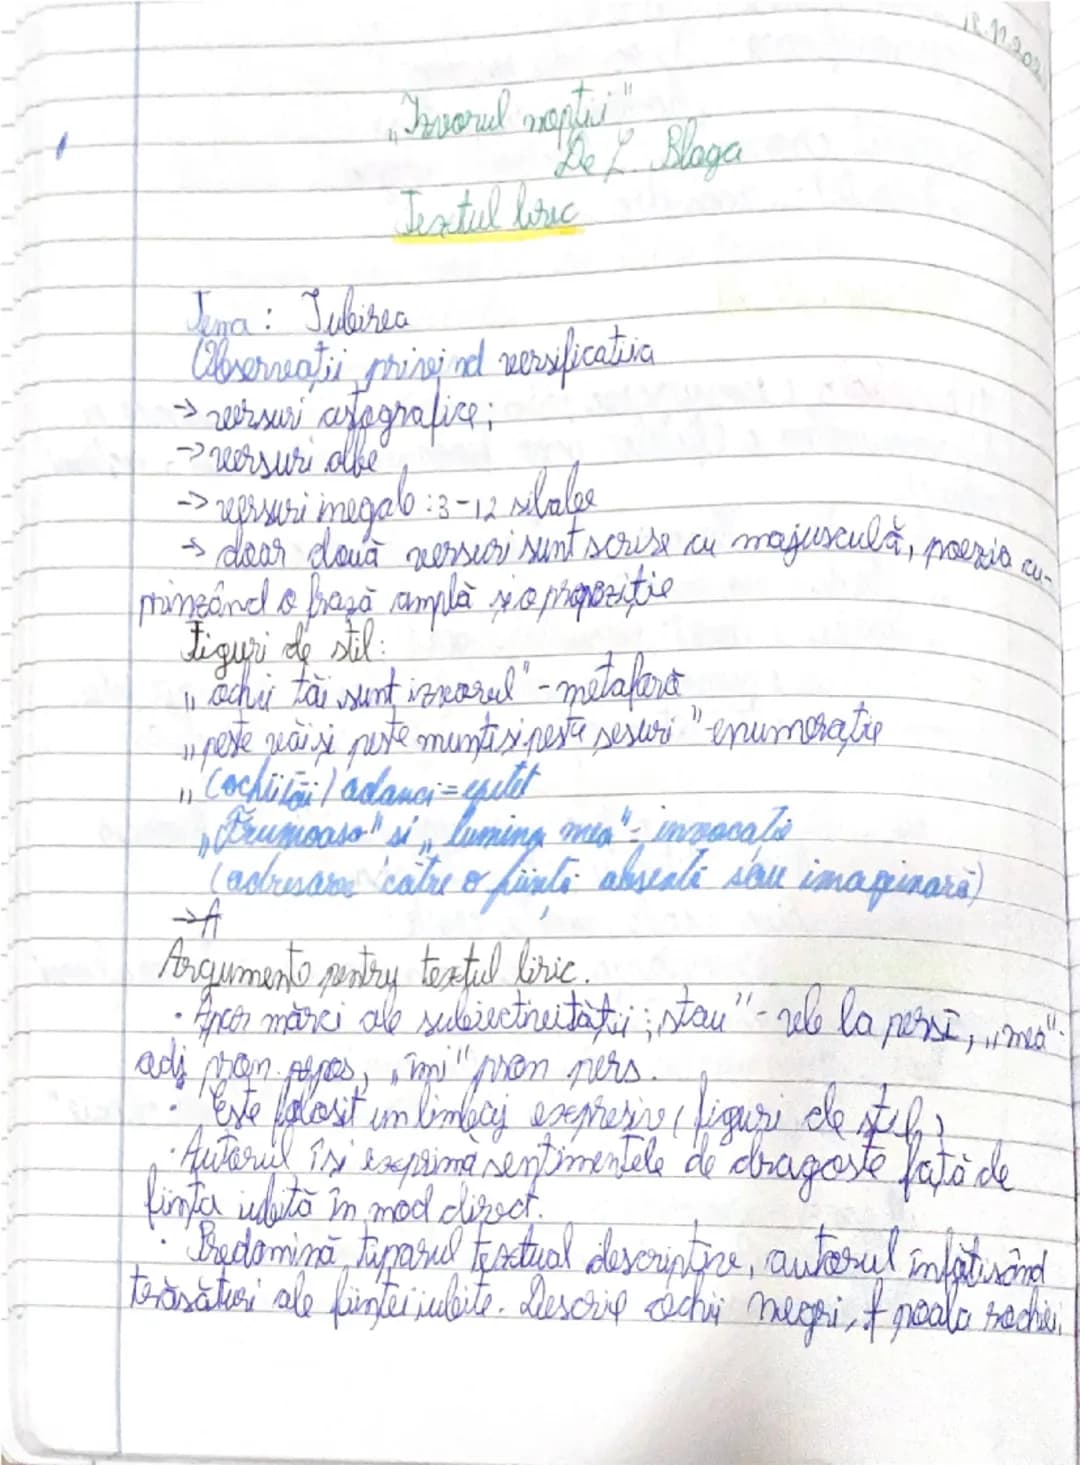 12.11.202
„Izvorul nopții"
De L. Blaga
Textul liric
Tema: Iubirea
Observații privind versificatiia
→ versuri astografice;
→ versuri albe
→ versuri inegale: 3-12 silabe
→ doar două versuri sunt scrise cu majusculă, poezia cu-
prinzând o frază amplă și o propoziție
Figuri de stil:
„ochii tăi sunt izvorul" - metaforă
„peste văi si peste munti si peste sesuri" - enumerație
„(ochii tăi) adanci = epitet
„Frumoaso" si „lumina mea" - invocatie
(adresare către o ființă absentă sau imaginară)
→ A
Argumente pentru textul liric.
· Apar mărci ale subiectivității: „stau" - vb la pers I, „mea" -
adj pron. posos, „îmi" pron pers.
· Este folosit un limbaj expresiv (figuri de stil)
· Autorul își exprimă sentimentele de dragoste față de
ființa iubită în mod direct.
· Predomină tiparul textual descriptiv, autorul înfățisând
trăsături ale ființei iubite. Descrie ochii negri, poala rochiei,